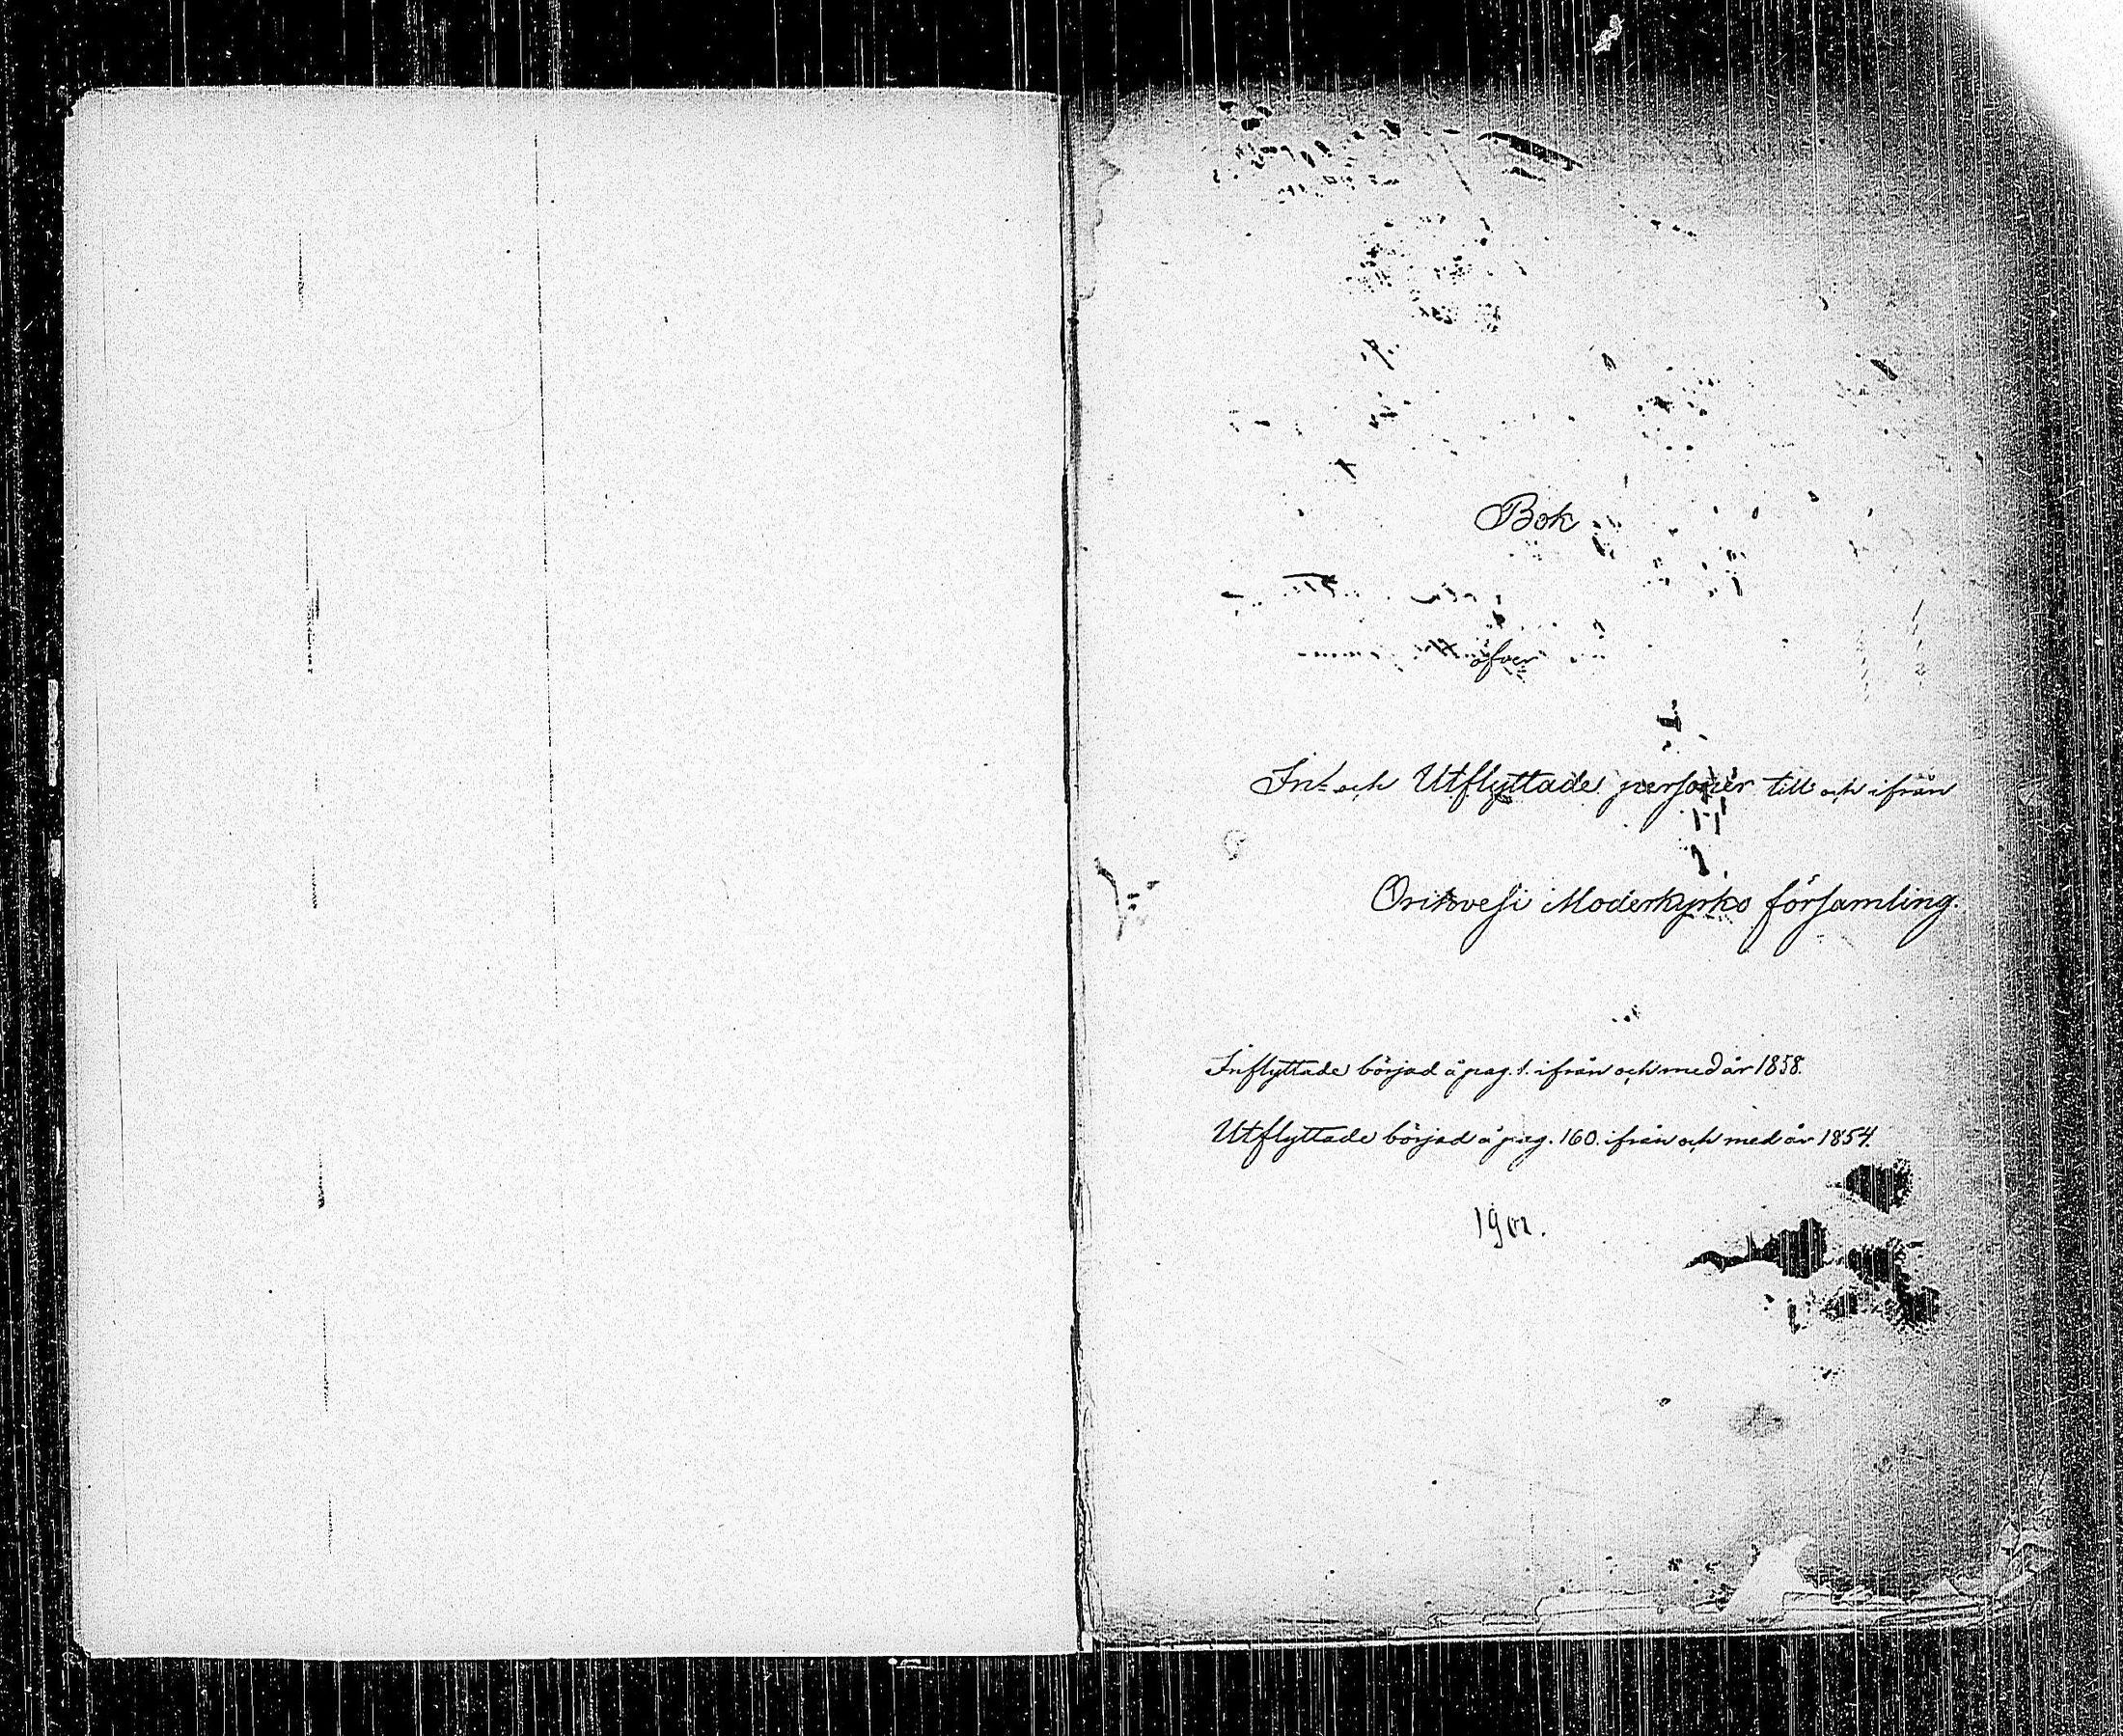 Bok
öfver
In- och Utflyttade personer till och ifrån
Orihvesi Moderkyrko församling.
Inflyttade börjad å pag. 1. ifrån och med år 1858.
Utflyttade börjad å pag. 160. ifrån och med år 1854.